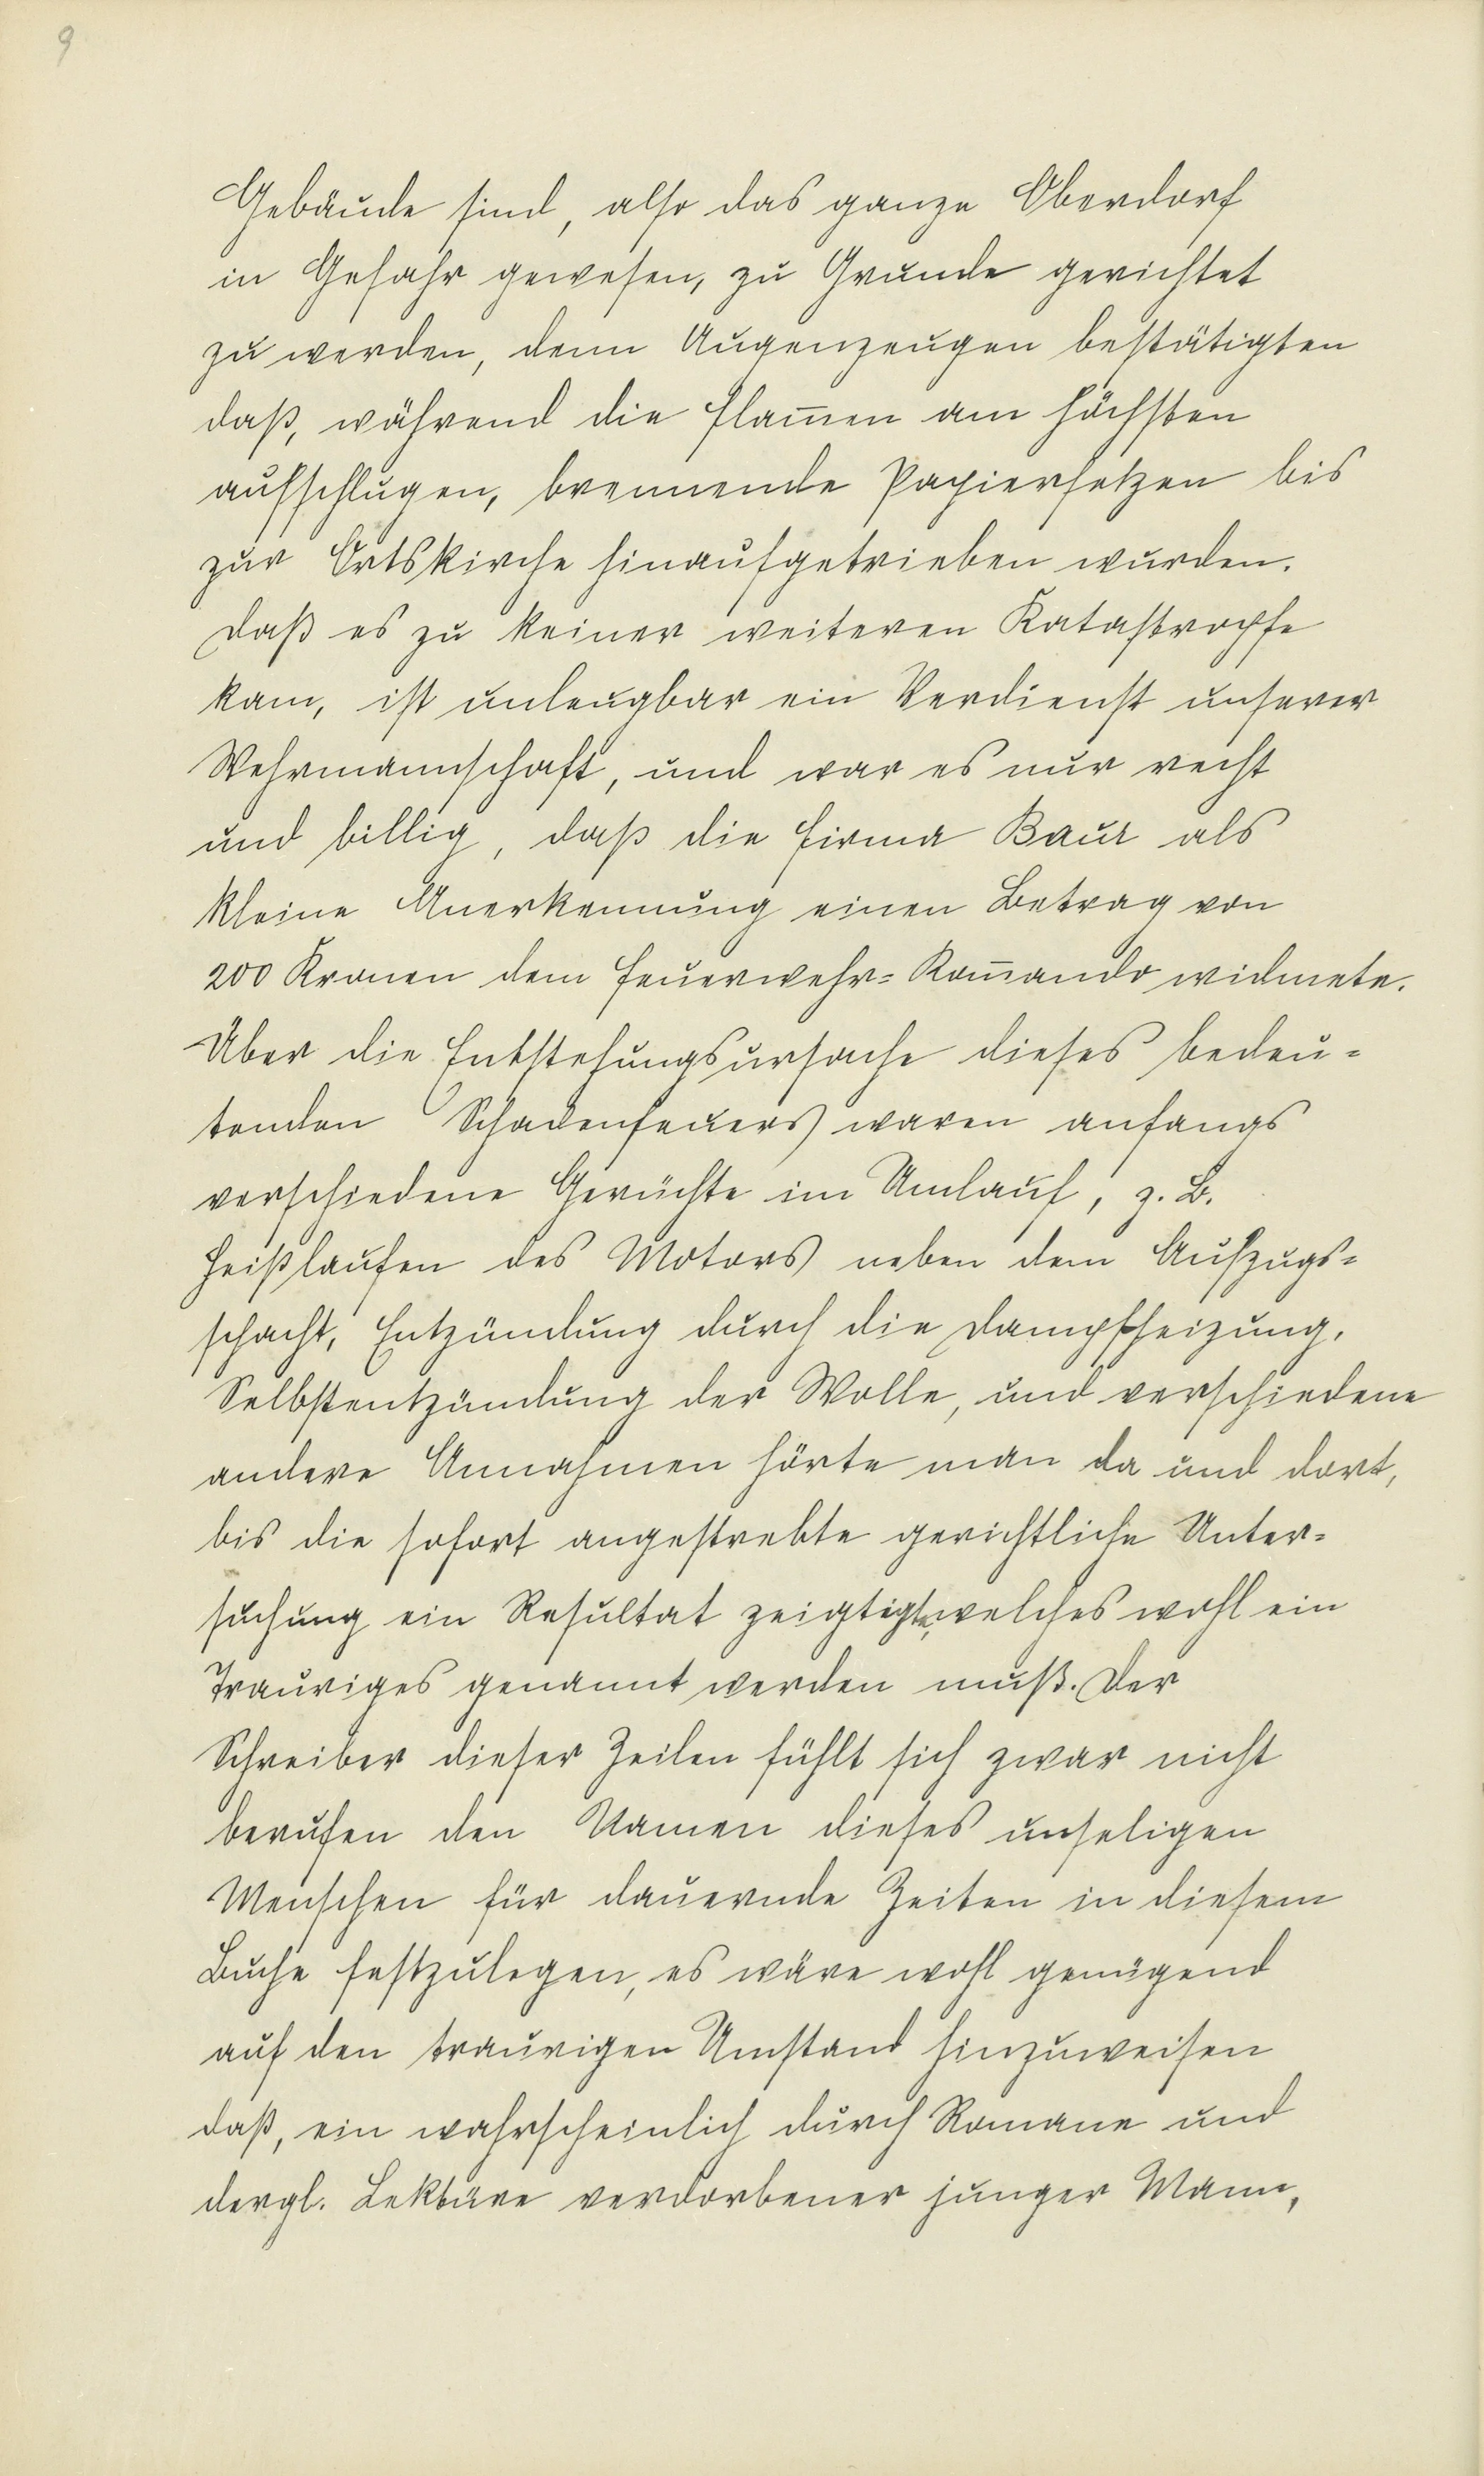 9
Gebäude sind, also das ganze Oberdorf
in Gefahr gewesen, zu Grunde gerichtet
zu werden, denn Augenzeugen bestätigten
daß, während die Flam̄en am höchsten
aufschlugen, brennende Papierfetzen bis
zur Ortskirche hinaufgetrieben wurden.
Daß es zu keiner weiteren Katastrophe
kam, ist unleugbar ein Verdienst unserer
Wehrmannschaft, und war es nur recht
und billig, daß die Firma Baur als
kleine Anerkennung einen Betrag von
200 Kronen dem Feuerwehr=Kom̄ando widmete.
Über die Entstehungsursache dieses bedeu=
tenden Schadenfeuers waren anfangs
verschiedene Gerüchte im Umlauf, z. B.
Heißlaufen des Motors neben dem Aufzugs=
schacht, Entzündung durch die Dampfheizung,
Selbstentzündung der Wolle, und verschiedene
andere Annahmen hörte man da und dort,
bis die sofort angestrebte gerichtliche Unter=
suchung ein Resultat zeigtigte, welches wohl ein
Trauriges genannt werden muß. Der
Schreiber dieser Zeilen fühlt sich zwar nicht
berufen den Namen dieses unseligen
Menschen für dauernde Zeiten in diesem
Buche festzulegen, es wäre wohl genügend
auf den traurigen Umstand hinzuweisen
daß, ein wahrscheinlich durch Romane und
dergl. Lektüre verdorbener junger Mann,